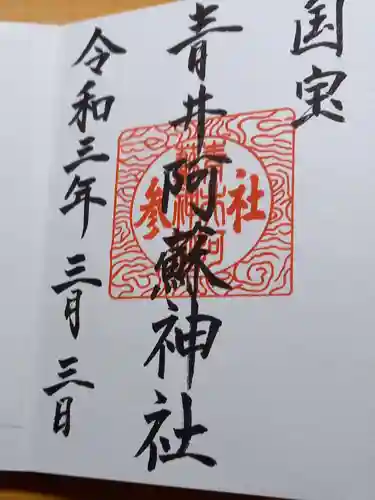 国宝
青井阿蘇神社
令和三年三月三日